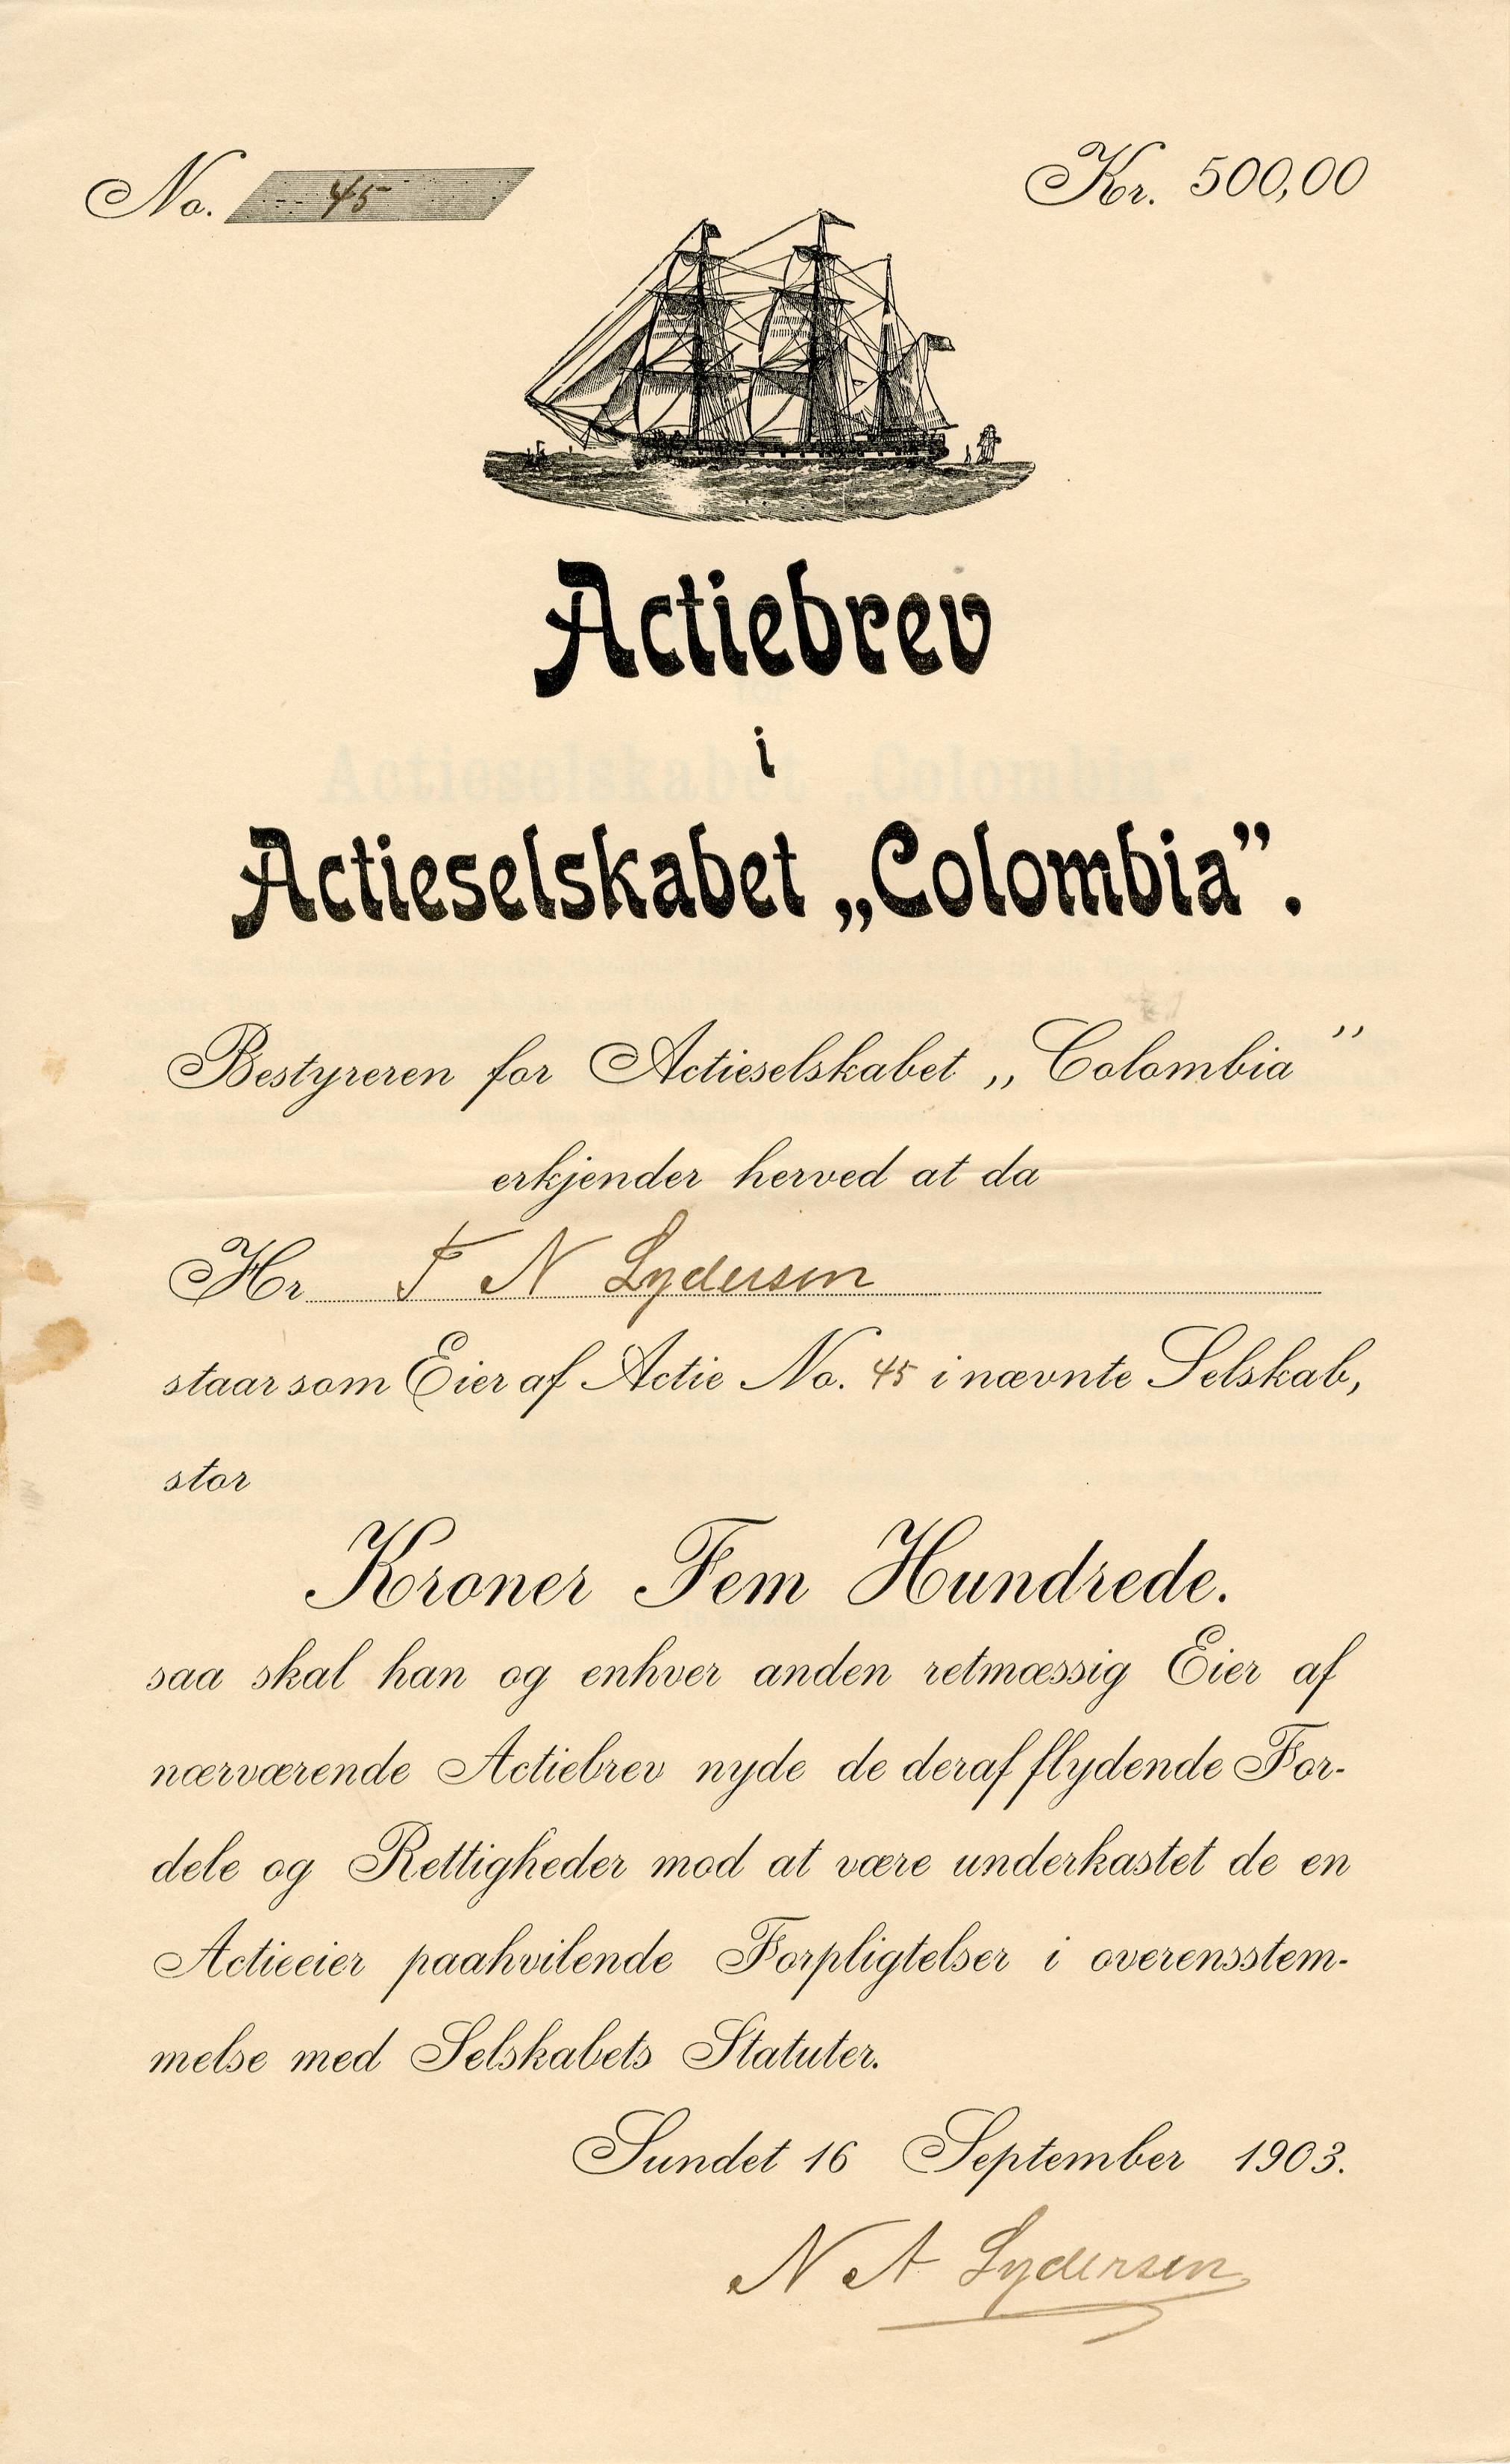 No. 45
Kr. 500,00
Actiebrev
i
Actieselskabet „Colombia”.
Bestyreren for Actieselskabet „Colombia”
erkjender herved at da
Hr F N Lydersen
staar som Eier af Actie No. 45 i nævnte Selskab,
stor
Kroner Fem Hundrede.
saa skal han og enhver anden retmæssig Eier af
nærværende Actiebrev nyde de deraf flydende For-
dele og Rettigheder mod at være underkastet de en
Actieeier paahvilende Forpligtelser i overensstem-
melse med Selskabets Statuter.
Sundet 16 September 1903.
N A Lydersen